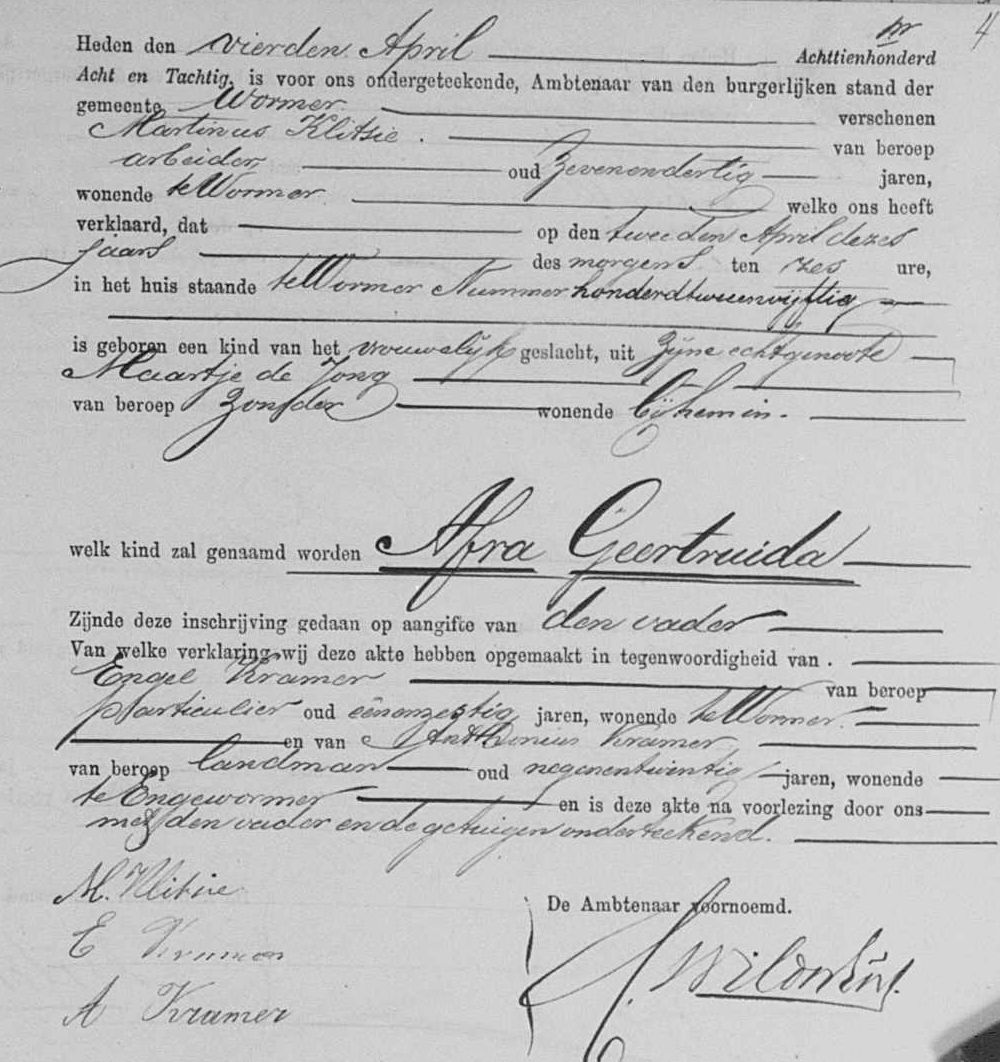 4
Heden den vierden April Achttienhonderd
Acht en Tachtig, is voor ons ondergeteekende, Ambtenaar van den burgerlijken stand der
gemeente Wormer verschenen
Martinus Klitsie van beroep
arbeider oud Zevenendertig jaren,
wonende te Wormer welke ons heeft
verklaard, dat op den tweeden April dezes
jaars des morgens ten zes ure,
in het huis staande te Wormer Nummer honderdtweeenvijftig
is geboren een kind van het vrouwelijk geslacht, uit Zijne echtgenoote
Maartje de Jong
van beroep Zonder wonende bij hem in.
welk kind zal genaamd worden Afra Geertruida
Zijnde deze inschrijving gedaan op aangifte van den vader
Van welke verklaring wij deze akte hebben opgemaakt in tegenwoordigheid van .
Engel Kramer van beroep
particulier oud eenenzestig jaren, wonende te Wormer
en van Anthonius Kramer,
van beroep landman oud negenentwintig jaren, wonende
te Engewormer en is deze akte na voorlezing door ons
met den vader en de getuigen onderteekend.
M. Klitsie
De Ambtenaar voornoemd.
E Kramer
A Kramer